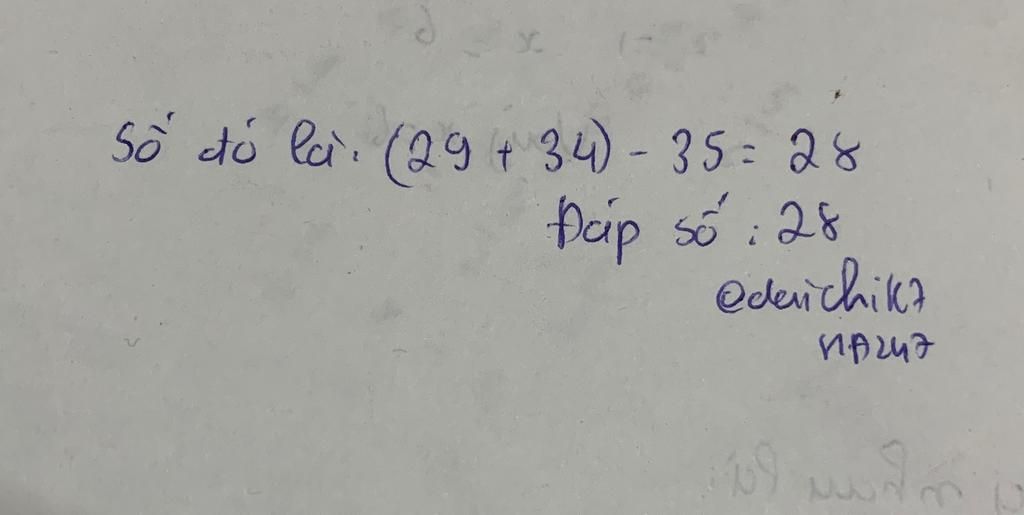 Số đó là: (29 + 34) - 35 = 28
Đáp số : 28
@daichik7